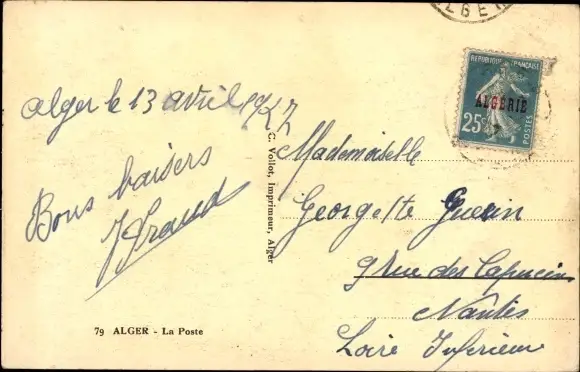 ALGER
REPUBLIQUE FRANÇAISE
ALGÉRIE
25c
POSTES
Alger le 13 avril 1927
Bons baisers
C. Vollot, Imprimeur, Alger
Mademoiselle
Georgette Guerin
9 rue des Capucins
Nantes
Loire Inférieure
79 ALGER - La Poste